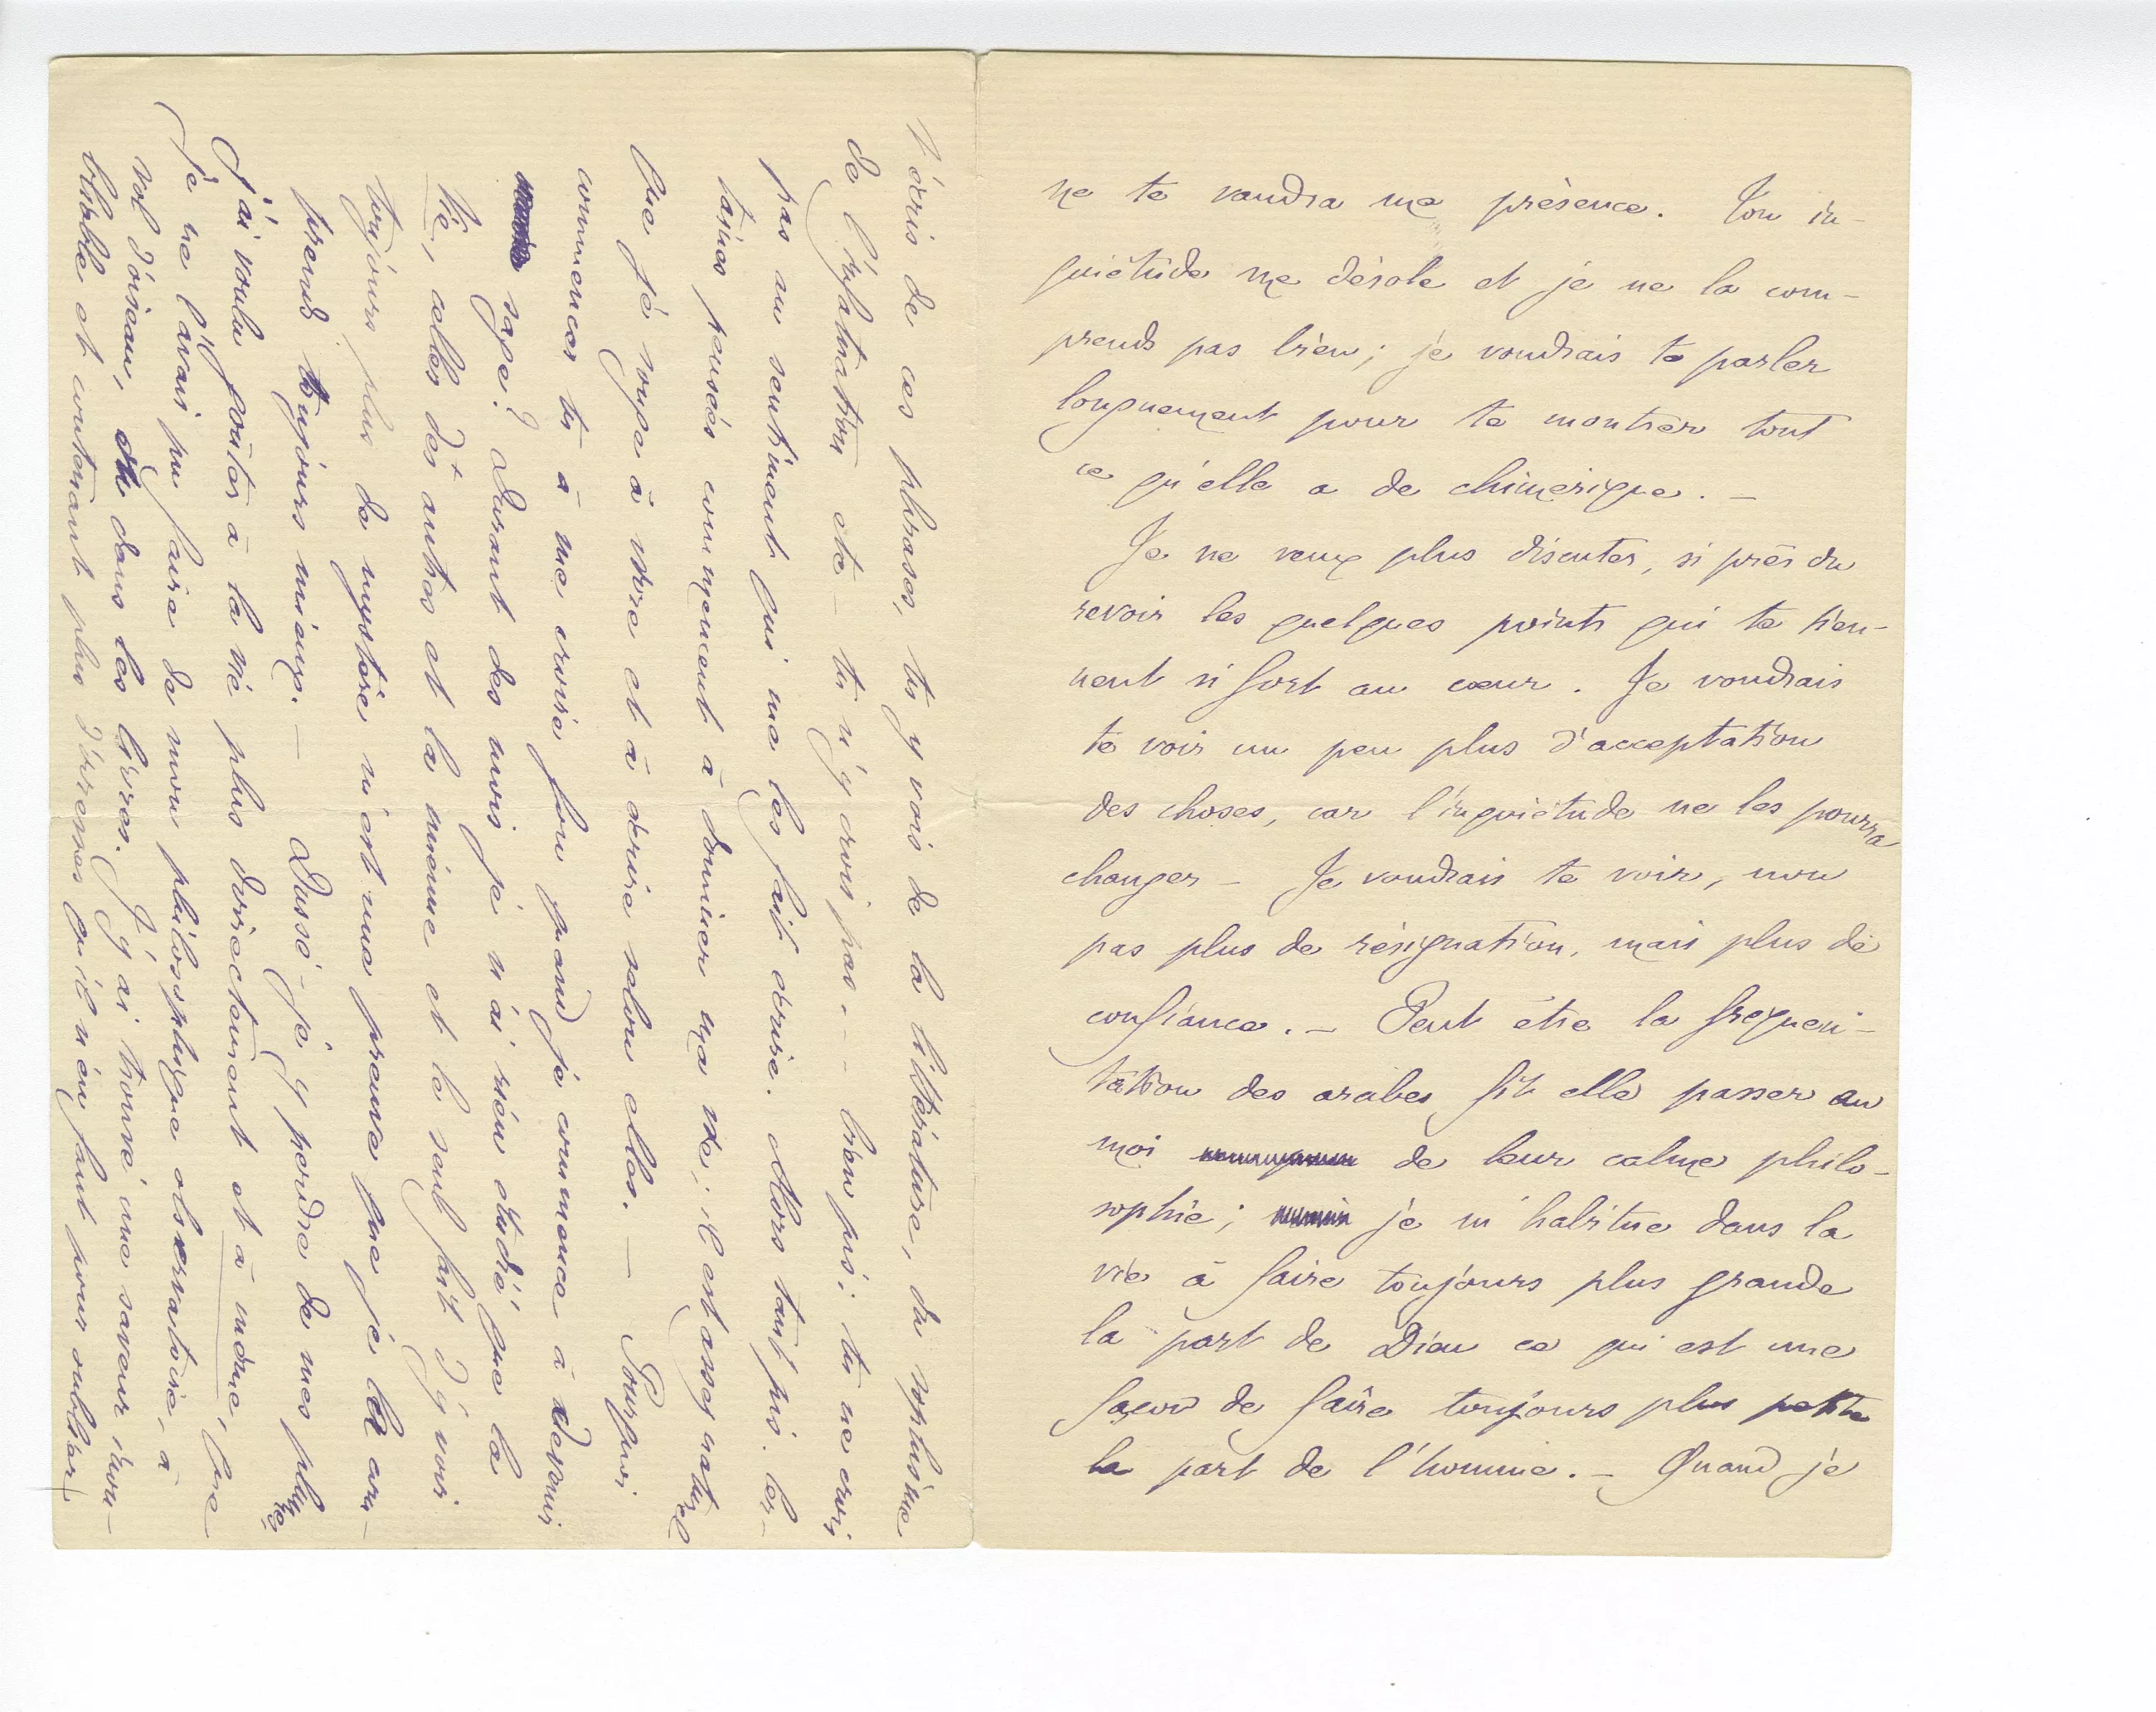 ne te vaudra ma présence. Ton in-
quiétude me désole et je ne la com-
prends pas bien; je voudrais te parler
longuement pour te montrer tout
ce qu'elle a de chimérique. –
Je ne veux plus discuter, si près du
revoir les quelques points qui te tien-
nent si fort au cœur. Je voudrais
te voir un peu plus d'acceptation
des choses, car l'inquiétude ne les pourra
changer – Je voudrais te voir, non
pas plus de résignation, mais plus de
confiance. – Peut être la fréquen-
tation des arabes fit elle passer en
moi de leur calme philo-
sophie; je m'habitue dans la
vie à faire toujours plus grande
la part de Dieu ce qui est une
façon de faire toujours plus petite
la part de l'homme. – Quand je
t'écris de ces phrases, tu y vois de la littérature, du sophisme
de l'exaltation etc – tu n'y crois pas... bien pis; tu ne crois
pas au sentiment qui me les fait écrire. Alors tant pis. Cer-
taines pensées commencent à dominer ma vie; il est assez naturel
que je songe à vivre et à écrire selon elles. – Pourquoi
commences tu à me croire fou quand je commence à devenir
sage? Durant des mois je n'ai rien étudié, que la
vie, celles des autres et la mienne et le seul fait d'y voir
toujours plus de mystère m'est une preuve que je la com-
prends toujours mieux. – Dussé-je y perdre de mes plumes,
j'ai voulu goûter à la vie plus directement et à même, que
je ne l'avais pu faire de mon philosophique observatoire, à
vol d'oiseau, ou dans les livres. J'y ai trouvé une saveur inou-
bliable et contenant plus d'ivresses qu'il n'en faut pour oublier